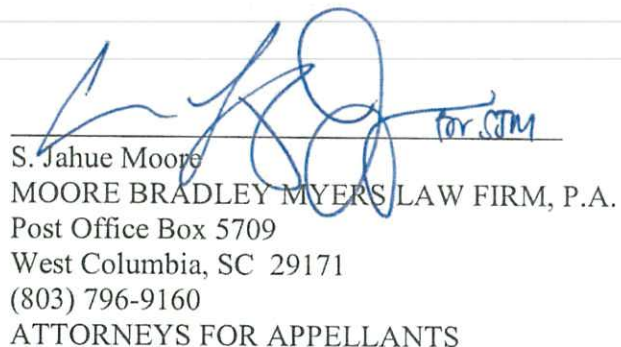 for SJM
S. Jahue Moore
MOORE BRADLEY MYERS LAW FIRM, P.A.
Post Office Box 5709
West Columbia, SC 29171
(803) 796-9160
ATTORNEYS FOR APPELLANTS